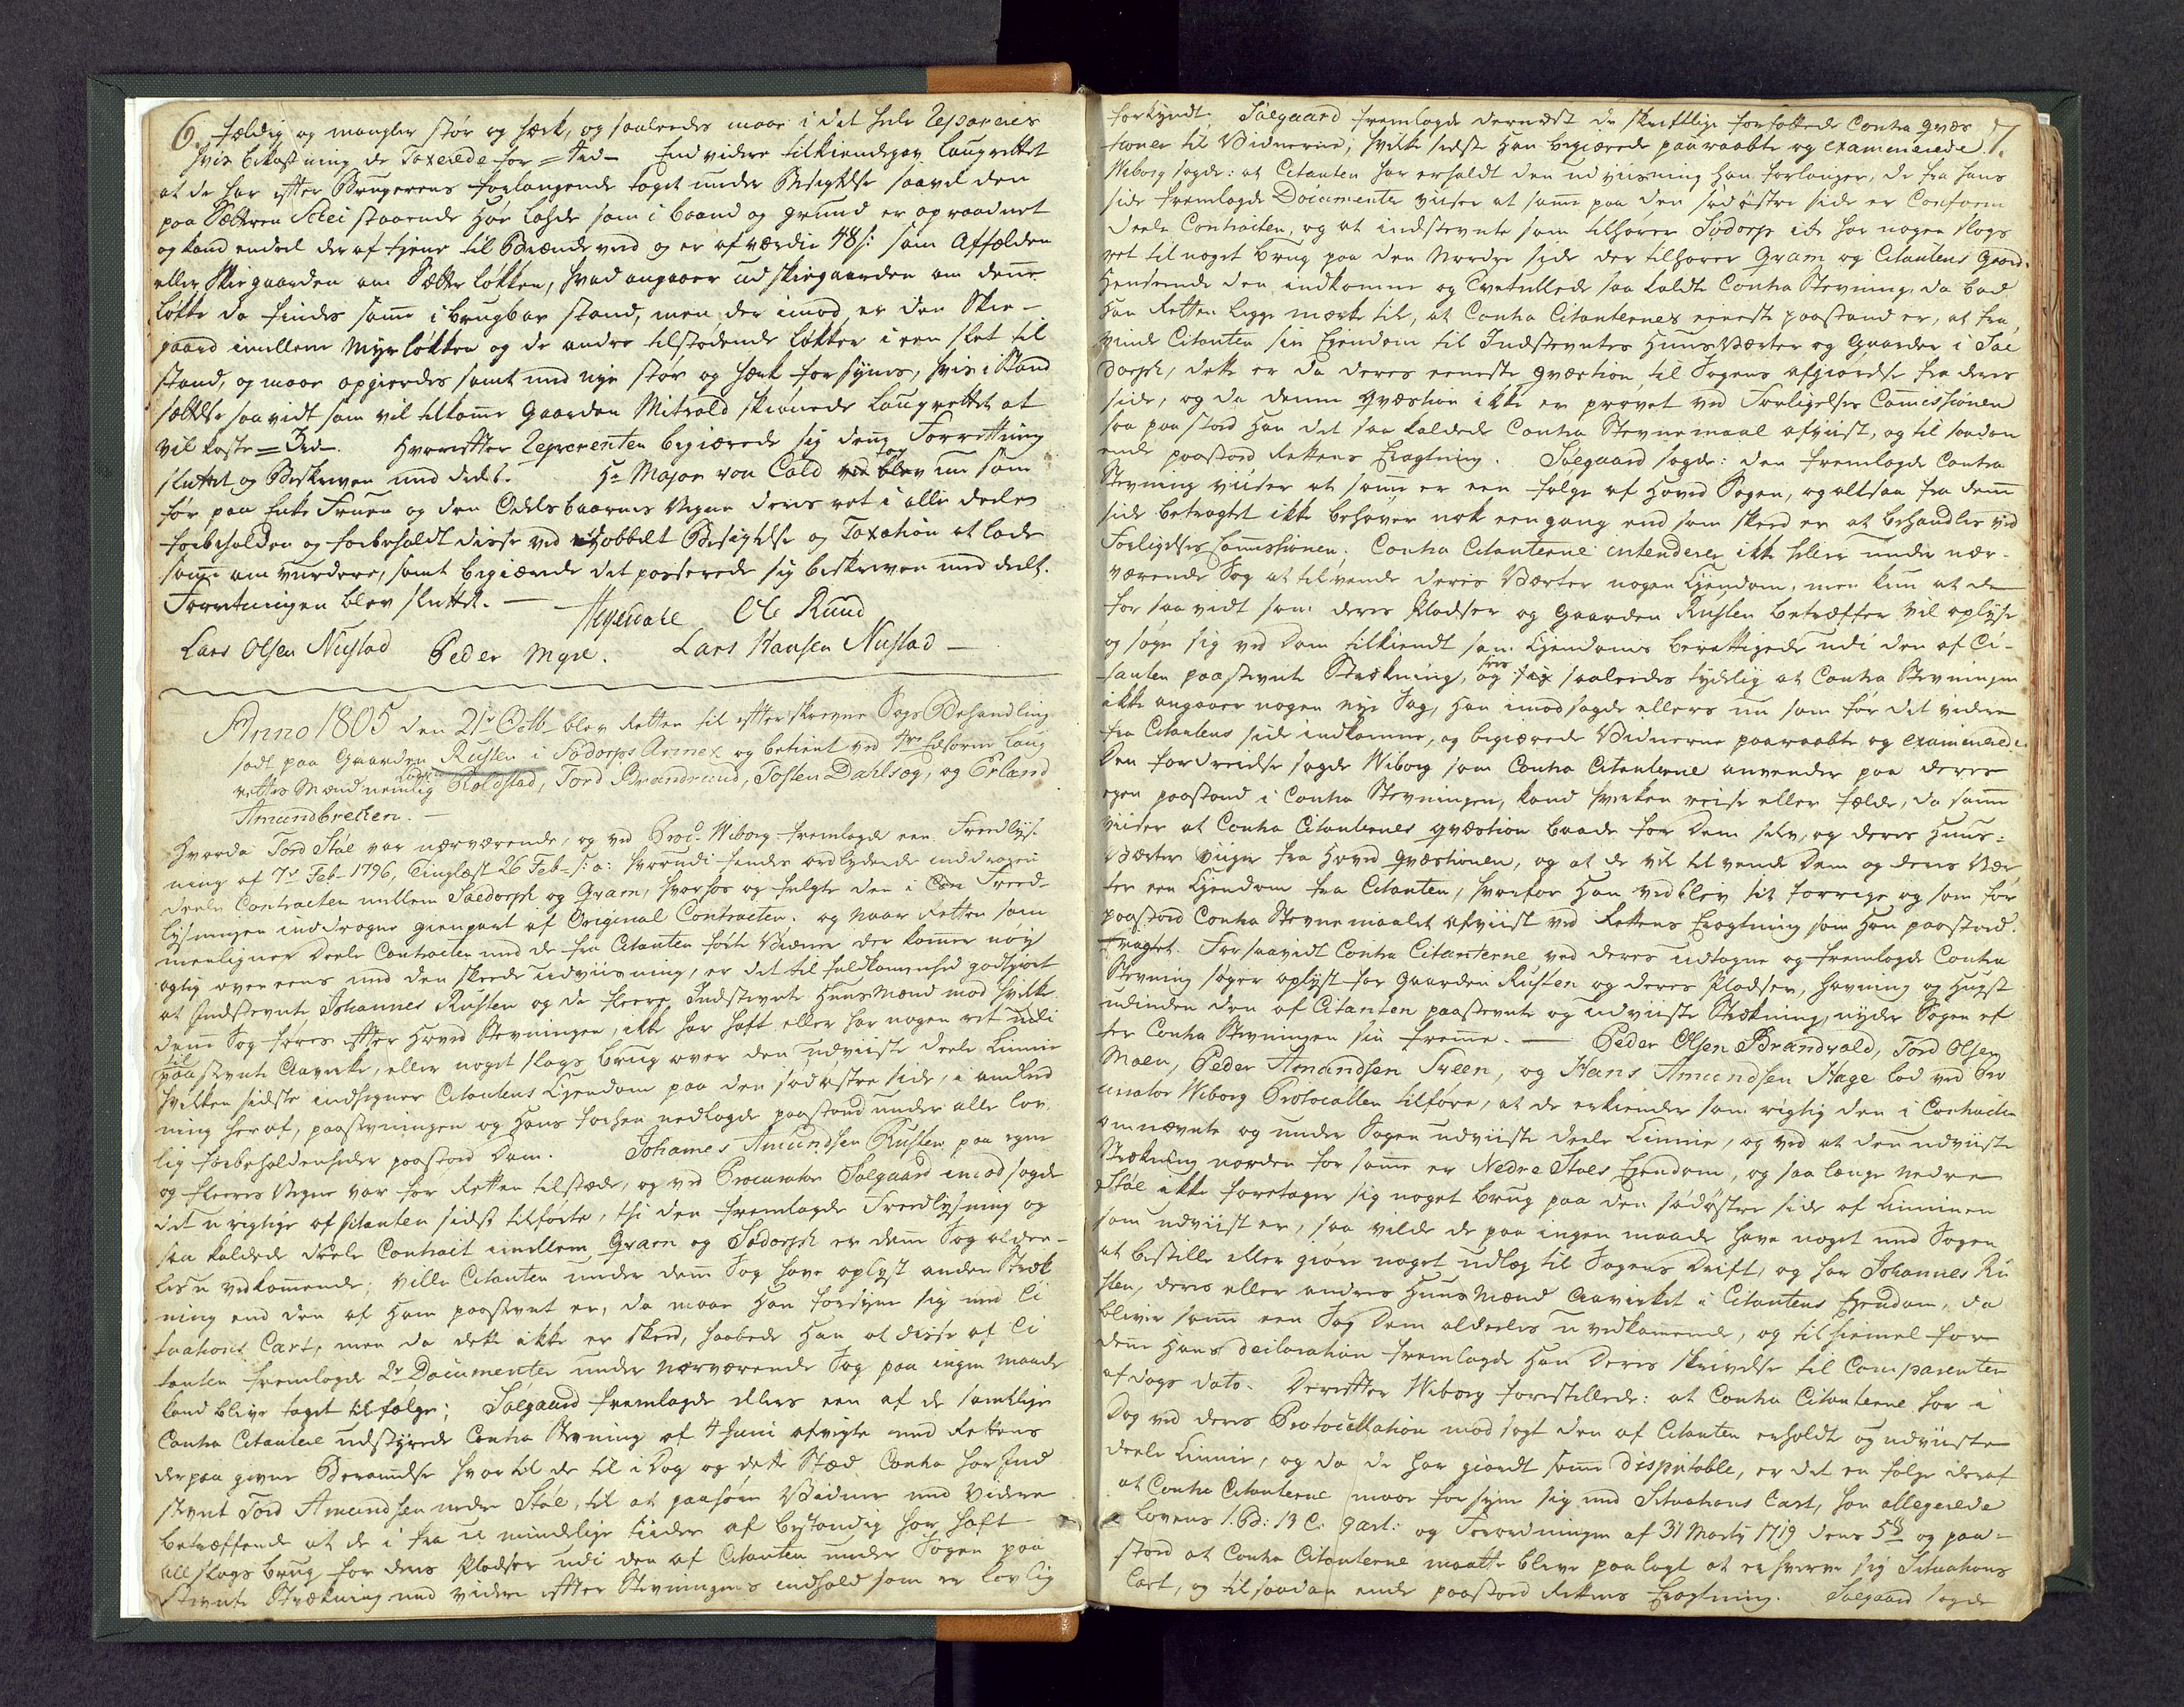 6.
fældig og mangler stør og hank, og saaledes maae i det hele Repareres
hvis bekostning de Taxerede for = 4rd – Endvidere tilkiendegav Laugrettet
at de har efter Brugerens forlangende taget under Besigtelse saavel den
paa Sætteren Schei staaende Høe Lahde som i baand og grund er opraadnet
og kand endeel deraf tiene til Brændeved og er af værdie 48 s: som Affælden
eller Skiegaarden om Sætter løkken, hvad angaaer udskiegaarden om denne
løkke da findes samme i brugbar stand, men der imod er den Skie-
gaard imellem Myrløkken og de andre tilstødende løkker i een slet til
stand, og maae opgierdes samt med nye stør og hank forsynes, hvis i Stand
sættelse saavidt som vil tilkomme Gaarden Mitvold skiønnede Laugrettet at
vil koste = 3rd –. Hvorefter Reqvirenten begiærede sig denne Forretning
sluttet og Beskreven meddeelt. Hr Major von Cald tog nu som
før paa Enke Fruen og den Odelsbaarnes Vegne deres ret i alle deele
forbeholden og forbeholdt disse ved Dobbelt Besigtelse og Taxation at lade
samme om vurdere, samt begiærede det passerede sig beskreven meddeelt.
Forretningen blev sluttet. –
Ole Ruud
Lars Olsen Nustad Peder Myre. Lars Hansen Nustad –
Anno 1805 den 21de Octb. blev Retten til efterskrevne Sags Behandling
sadt paa Gaarden Rusten i Sødorps Annex og betient ved 4re Edsorne Laug
rettes Mænd nemlig Roldstad, Tord Brandrund, Tosten Dahlsog, og Erland
Amundbretten. –
Hvorda Tord Stál var nærværende, og ved Procr. Wiborg fremlagde een Freedlys-
ning af 7de Feb. 1796, Tinglæst 26 Feb. s: a: hvorudi findes ordlydende inddragen
Deele Contracten imellem Saedorph og Gram, hvorhos og fulgte den i Freed-
lysningen inddragne gienpart af Original Contracten. og naar Retten sam
menligner Deele Contracten med de fra Citanten førte Vidner der kommer nøy
agtig overeens med den skeede Udviisning, er det til fuldkommenhed godtgiort
at Indstevnte Johannes Rusten og de fleere Indstevnte Huusmænd mod hvilke
denne Sag føres efter Hoved Stevningen, ikke har haft eller har nogen ret udi
til
paastevnte Aavirke, eller noget slags brug over den udviiste Deele Linnie
hvilken sidste indsigner Citantens Ejendom paa den sødøstre side, i anled
ning heraf, paastevningen og Hans forhen nedlagde paastand under alle lov
lig forbeholdenheder paastod Dom. Johannes Amundsen Rusten paa egne
og fleeres Vegne var for Retten tilstæde, og ved Procurator Solgaard imodsagde
det urigtige af Citanten sidst tilførte, thi den fremlagde Freedlysning og
saa kaldede Deele Contract imellem Gram og Sødorph er denne Sag alde-
les uvedkommende; Ville Citanten under denne Sag have oplyst anden Stræk
ning end den af Ham paastevnt er, da maae Han forsyne sig med Si
tuations Cart, men da dette ikke er skeed, haabede Han at disse af Ci
tanten fremlagde 2de Documenter under nærværende Sag paa ingen maade
kand blive taget tilfølge; Solgaard fremlagde ellers een af de samtlige
Contra Citantere udstyrede Contra Stevning af 4 Juni afvigte med Rettens
derpaa givne Berammelse hvortil de til i Dag og dette Stæd Contra har Ind
stevnt Tord Amundsen nedre Stóle, til at paahøre Vidner med Videre
betræffende at de i fra umindelige tiider af bestandig har haft
all slags brug for deres Pladser udi den af Citanten under Sagen paa
stevnte Strækning med videre efter Stevningens indhold som er lovlig
7.
forkyndt. Solgaard fremlagde dernæst de skriftlige forfattede Contra Qvæs
tioner til Vidnerne, hvilke sidste Han begiærede paaraabte og examinerede.
Wiborg sagde: at Citanten har erholdt den udviisning Han forlanger, de fra Hans
side fremlagde Documenter viiser at samme paa den sødøstre side er Conform
Deele Contracten, og at indstevnte som tilhører Sødorp ikke har nogen slags
ret til noget brug paa den Nordre side der tilhører Gram og Citantens Gaard.
Henseende den indkomne og Contra Stevning, da bad
Han Retten legge mærke til, at Contra Citanternes eeneste paastand er, at fra
vinde Citanten sin Ejendom til Indstevntes Huusverter og Gaarder i Sae
dorph, dette er da deres eeneste Qvæstion til Sagens afgiørelse fra deres
side, og da denne Qvæstion ikke er prøvet ved Forligelses Commissionen
saa paastod Han det saa kaldede Contra Stevnemaal afviist, og til saadan
ende paastod Rettens Eragtning. Solgaard sagde: den fremlagde Contra
Stevning viiser at samme er een følge af Hoved Sagen, og altsaa fra denne
side betragtet ikke behøver nok eengang end som skeed er at behandles ved
Forligelses Commissionen. Contra Citanterne intenderer ikke heller under nær-
værende Sag at tilvende deres Værter nogen Ejendom, men kun at de
for saa vidt som deres Pladser og Gaarden Rusten betræffer vil oplyse
og søge sig ved Dom tilkiendt som Ejendoms berettigede udi den af Ci-
tanten paastevnte Strækning, og sees saaledes tydelig at Contra Stevningen
ikke angaaer nogen nye Sag, Han imodsagde ellers nu som før det videre
fra Citantens side indkomne, og begiærede Vidnerne paaraabte og examinerede.
Den fordreielse sagde Wiborg som Contra Citanterne anvender paa deres
egen paastand i Contra Stevningen, kand hverken reise eller fælde, da samme
viiser at Contra Citanternes qvæstion baade for Dem selv, og deres Huus:
Værter viiger fra Hoved Qvæstionen, og at de vil tilvende Dem og deres Vær
ter een Ejendom fra Citanten, hvorfor Han vedblev sit forrige og som før
paastod Contra Stevnemaalet afviist ved Rettens Eragtning som Han paastod.
Eragtet. Forsaavidt Contra Citanterne ved deres udtagne og fremlagde Contra
Stevning søger oplyst for Gaarden Rusten og deres Pladser, Havning og Hugst
udinden den af Citanten paastevnte og udviiste Strækning, nyder Sagen ef
ter Contra Stevningen sin fremme. – Peder Olsen Brandvold, Tord Olsen
Moen, Peder Amundsen Treen, og Hans Amundsen Hage lod ved Pro
curator Wiborg Protocollen tilføre, at de erkiender som rigtig den i Contracten
omnævnte og under Sagen udviiste Deele Linnie, og ved at den udviiste
Strækning norden for samme er Nedre Stoles Ejendom, og saa længe nedre
Stól ikke foretager sig noget brug paa den sødøstre side af Linnien
som udviist er, saa vilde de paa ingen maade have noget med Sagen
at bestille eller giøre noget udlæg til Sagens Drift, og har Johannes Ru
sten, deres eller andres Huusmænd Aavirket i Citantens Ejendom, da
bliver samme een Sag Dem aldeeles uvedkommende, og til hiemmel for
denne Hans Declaration fremlagde Han Deres skrivelse til Comparenten
af Dags dato. Derefter Wiborg forestillede: at Contra Citanterne har i
Dag ved deres Protocollation modsagt den af Citanten erholdte og udviiste
Deele Linnie, og da de har giordt samme disputable, er det en følge deraf
at Contra Citanterne maae forsyne sig med Situations Cart, han allegerede
Lovens 1. B: 13 C: 9 art: og Forordningen af 31 Marty 1719 dens 5 § og paa-
stod at Contra Citanterne maatte blive paalagt at erhverve sig Situations
Cart, og til saadan ende paastod Rettens Eragtning. Solgaard sagde